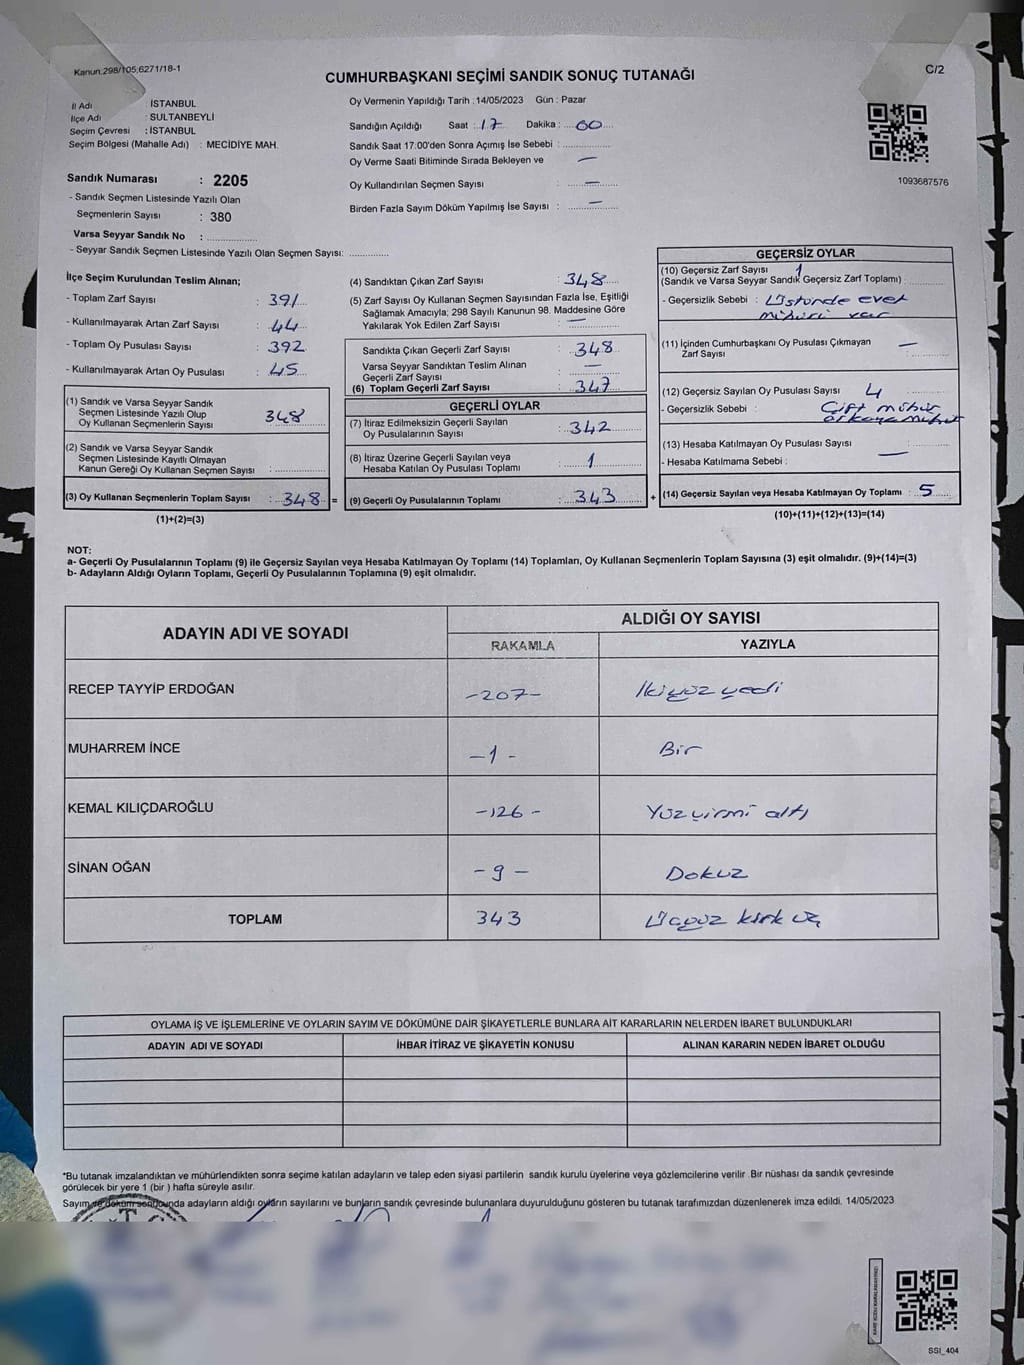 Kanun:298/105;6271/18-1
C/2
CUMHURBAŞKANI SEÇİMİ SANDIK SONUÇ TUTANAĞI
İl Adı : İSTANBUL
İlçe Adı : SULTANBEYLİ
Seçim Çevresi : İSTANBUL
Seçim Bölgesi (Mahalle Adı) : MECİDİYE MAH.
Sandık Numarası : 2205
- Sandık Seçmen Listesinde Yazılı Olan
Seçmenlerin Sayısı : 380
Varsa Seyyar Sandık No :
- Seyyar Sandık Seçmen Listesinde Yazılı Olan Seçmen Sayısı:
Oy Vermenin Yapıldığı Tarih : 14/05/2023 Gün : Pazar
Sandığın Açıldığı Saat : 17 Dakika : 00
Sandık Saat 17:00'den Sonra Açımış İse Sebebi :
Oy Verme Saati Bitiminde Sırada Bekleyen ve —
Oy Kullandırılan Seçmen Sayısı : —
Birden Fazla Sayım Döküm Yapılmış İse Sayısı : —
1093687576
İlçe Seçim Kurulundan Teslim Alınan;
- Toplam Zarf Sayısı : 391
- Kullanılmayarak Artan Zarf Sayısı : 44
- Toplam Oy Pusulası Sayısı : 392
- Kullanılmayarak Artan Oy Pusulası : 45
(1) Sandık ve Varsa Seyyar Sandık
Seçmen Listesinde Yazılı Olup
Oy Kullanan Seçmenlerin Sayısı : 348
(2) Sandık ve Varsa Seyyar Sandık
Seçmen Listesinde Kayıtlı Olmayan
Kanun Gereği Oy Kullanan Seçmen Sayısı :
(3) Oy Kullanan Seçmenlerin Toplam Sayısı : 348 =
(1)+(2)=(3)
(4) Sandıktan Çıkan Zarf Sayısı : 348
(5) Zarf Sayısı Oy Kullanan Seçmen Sayısından Fazla İse, Eşitliği
Sağlamak Amacıyla; 298 Sayılı Kanunun 98. Maddesine Göre
Yakılarak Yok Edilen Zarf Sayısı : —
Sandıkta Çıkan Geçerli Zarf Sayısı : 348
Varsa Seyyar Sandıktan Teslim Alınan
Geçerli Zarf Sayısı : —
(6) Toplam Geçerli Zarf Sayısı : 347
GEÇERLİ OYLAR
(7) İtiraz Edilmeksizin Geçerli Sayılan
Oy Pusulalarının Sayısı : 342
(8) İtiraz Üzerine Geçerli Sayılan veya
Hesaba Katılan Oy Pusulası Toplamı : 1
(9) Geçerli Oy Pusulalarının Toplamı : 343 +
GEÇERSİZ OYLAR
(10) Geçersiz Zarf Sayısı 1
(Sandık ve Varsa Seyyar Sandık Geçersiz Zarf Toplamı) :
- Geçersizlik Sebebi : Üstünde evet
mühürü var
(11) İçinden Cumhurbaşkanı Oy Pusulası Çıkmayan —
Zarf Sayısı :
(12) Geçersiz Sayılan Oy Pusulası Sayısı : 4
- Geçersizlik Sebebi : Çift mühür
(13) Hesaba Katılmayan Oy Pusulası Sayısı :
- Hesaba Katılmama Sebebi : —
(14) Geçersiz Sayılan veya Hesaba Katılmayan Oy Toplamı : 5
(10)+(11)+(12)+(13)=(14)
NOT:
a- Geçerli Oy Pusulalarının Toplamı (9) ile Geçersiz Sayılan veya Hesaba Katılmayan Oy Toplamı (14) Toplamları, Oy Kullanan Seçmenlerin Toplam Sayısına (3) eşit olmalıdır. (9)+(14)=(3)
b- Adayların Aldığı Oyların Toplamı, Geçerli Oy Pusulalarının Toplamına (9) eşit olmalıdır.
ADAYIN ADI VE SOYADI
ALDIĞI OY SAYISI
RAKAMLA YAZIYLA
RECEP TAYYİP ERDOĞAN -207- İkiyüz yedi
MUHARREM İNCE -1- Bir
KEMAL KILIÇDAROĞLU -126- Yüzyirmi altı
SİNAN OĞAN -9- Dokuz
TOPLAM 343 Üçyüz kırk üç
OYLAMA İŞ VE İŞLEMLERİNE VE OYLARIN SAYIM VE DÖKÜMÜNE DAİR ŞİKAYETLERLE BUNLARA AİT KARARLARIN NELERDEN İBARET BULUNDUKLARI
ADAYIN ADI VE SOYADI İHBAR İTİRAZ VE ŞİKAYETİN KONUSU ALINAN KARARIN NEDEN İBARET OLDUĞU
*Bu tutanak imzalandıktan ve mühürlendikten sonra seçime katılan adayların ve talep eden siyasi partilerin sandık kurulu üyelerine veya gözlemcilerine verilir. Bir nüshası da sandık çevresinde
görülecek bir yere 1 (bir ) hafta süreyle asılır.
Sayım ve döküm sonucunda adayların aldığı oyların sayılarını ve bunların sandık çevresinde bulunanlara duyurulduğunu gösteren bu tutanak tarafımızdan düzenlenerek imza edildi. 14/05/2023
SSI_404